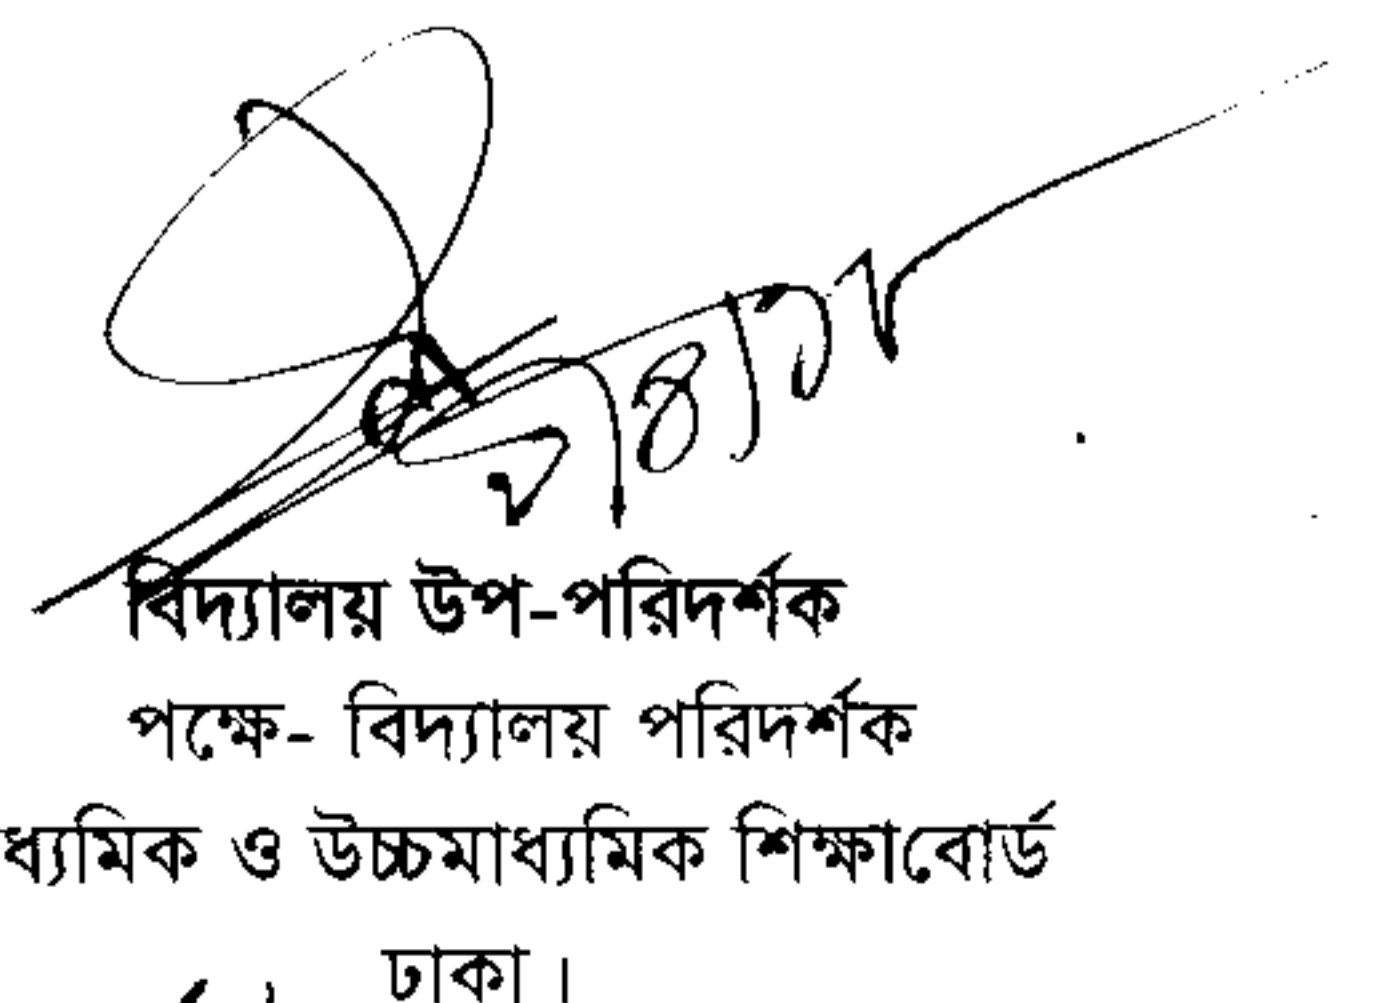 বিদ্যালয় উপ-পরিদর্শক
পক্ষে- বিদ্যালয় পরিদর্শক
ধ্যমিক ও উচ্চমাধ্যমিক শিক্ষাবোর্ড
ঢাকা।